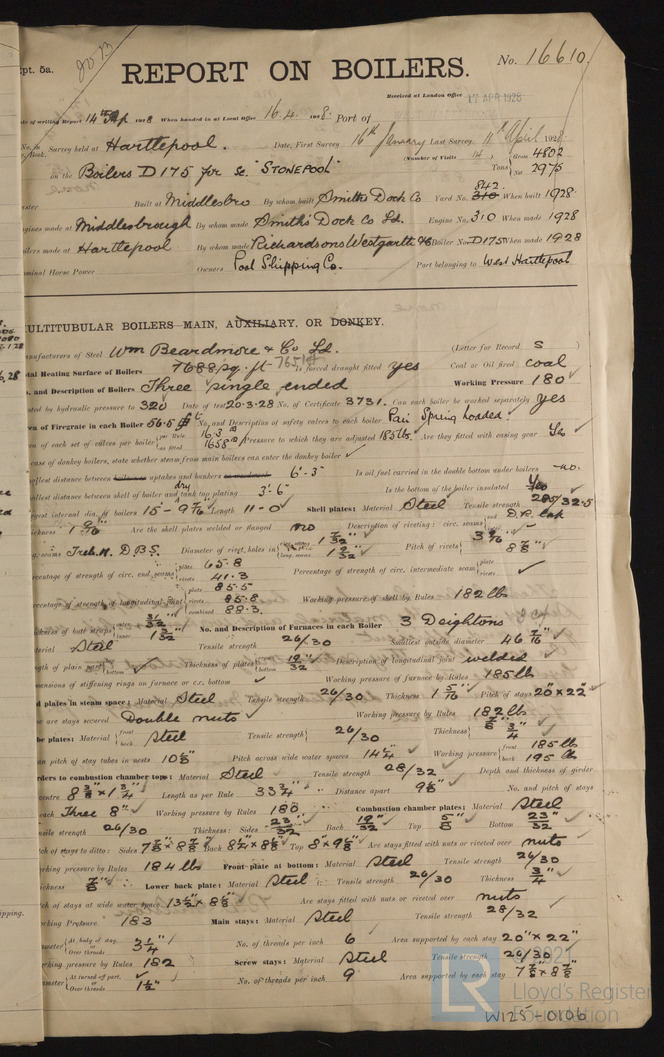 pt. 5a.
REPORT ON BOILERS.
No. 16610
Received at London Office 17 APR 1928
of writing Report 14th 1928 When handed in at Local Office 16.4. 1928 Port of
Survey held at Hartlepool. Date, First Survey 16th January Last Survey 11th April 1928
(Number of Visits
on the Boilers D175 for sc. "STONEPOOL" Tons Gross 4802 Net 2975
Built at Middlesbro By whom built Smith's Dock Co Yard No. 842 When built 1928
made at Middlesbrough By whom made Smith's Dock Co Ld. Engine No. 310 When made 1928
made at Hartlepool By whom made Richardsons Westgarth Boiler No. D175 When made 1928
Horse Power Owners Pool Shipping Co. Port belonging to West Hartlepool
MULTITUBULAR BOILERS MAIN, AUXILIARY, OR DONKEY.
of Steel Wm Beardmore & Co Ld. (Letter for Record S)
Heating Surface of Boilers 7688 sq. ft Is forced draught fitted yes Coal or Oil fired coal
and Description of Boilers Three single ended Working Pressure 180
by hydraulic pressure to 320 Date of test 20.3.28 No. of Certificate 3731. Can each boiler be worked separately yes
of Firegrate in each Boiler 56.5 No. and Description of safety valves to each boiler Pair Spring Loaded.
of each set of valves per boiler per Rule 16.3 as fitted 16.58 Pressure to which they are adjusted 185 lbs. Are they fitted with easing gear Yes
case of donkey boilers, state whether steam from main boilers can enter the donkey boiler
distance between boilers or uptakes and bunkers 6'-3" Is oil fuel carried in the double bottom under boilers no.
distance between shell of boiler and dry tank top plating 3'.6" Is the bottom of the boiler insulated Yes
internal dia. of boilers 15'-9 9/16" Length 11-0 Shell plates: Material Steel Tensile strength 28.5/32.5
1 9/16" Are the shell plates welded or flanged no Description of riveting: circ. seams D.R. Lap
seams Treb. R. D.B.S. Diameter of rivet holes in circ. seams long. seams Pitch of rivets
Percentage of strength of circ. end seams plate 65.8 rivets 41.3 Percentage of strength of circ. intermediate seam plate rivets
percentage of strength of longitudinal joint plate 85.5 rivets 85.8 combined 88.3. Working pressure of shell by Rules 182 lbs
of butt straps No. and Description of Furnaces in each Boiler 3 Deightons
Steel Tensile strength 26/30 Smallest outside diameter 46 7/16"
of plain part bottom Thickness of plates bottom 19/32" Description of longitudinal joint welded
of stiffening rings on furnace or c.c. bottom Working pressure of furnace by Rules 185 lb
plates in steam space: Material Steel Tensile strength 26/30 Thickness 1 5/16" Pitch of stays 20" x 22"
are stays secured Double nuts Working pressure by Rules 182 lb
plates: Material front back Steel Tensile strength 26/30 Thickness 7/8" 3/4"
pitch of stay tubes in nests 10 1/8" Pitch across wide water spaces 14 1/4" Working pressure front 185 lb back 195 lb
to combustion chamber tops: Material Steel Tensile strength 28/32 Depth and thickness of girder
centre 8 3/8" x 1 3/4" Length as per Rule 33 3/4" Distance apart 9 1/8" No. and pitch of stays
each Three 8" Working pressure by Rules 180 Combustion chamber plates: Material Steel
strength 26/30 Thickness: Sides 23/32" Back 19/32" Top 5/8" Bottom 23/32"
of stays to ditto: Sides 7 7/8" x 8 7/8" Back 8 1/2" x 8 1/8" Top 8" x 9 1/8" Are stays fitted with nuts or riveted over nuts
pressure by Rules 184 lb Front plate at bottom: Material Steel Tensile strength 26/30
7/8" Lower back plate: Material Steel Tensile strength 26/30 Thickness 3/4"
of stays at wide water space 13 1/2" x 8 1/8" Are stays fitted with nuts or riveted over nuts
Pressure 183 Main stays: Material Steel Tensile strength 28/32
At body of stay, or Over threads 3 1/4" No. of threads per inch 6 Area supported by each stay 20" x 22"
pressure by Rules 182 Screw stays: Material Steel Tensile strength 26/30
At turned off part, or Over threads 1 1/2" No. of threads per inch 9 Area supported by each stay 7 7/8" x 8 7/8"
© 2021
LR
Lloyd's Register
Foundation
W125-0106